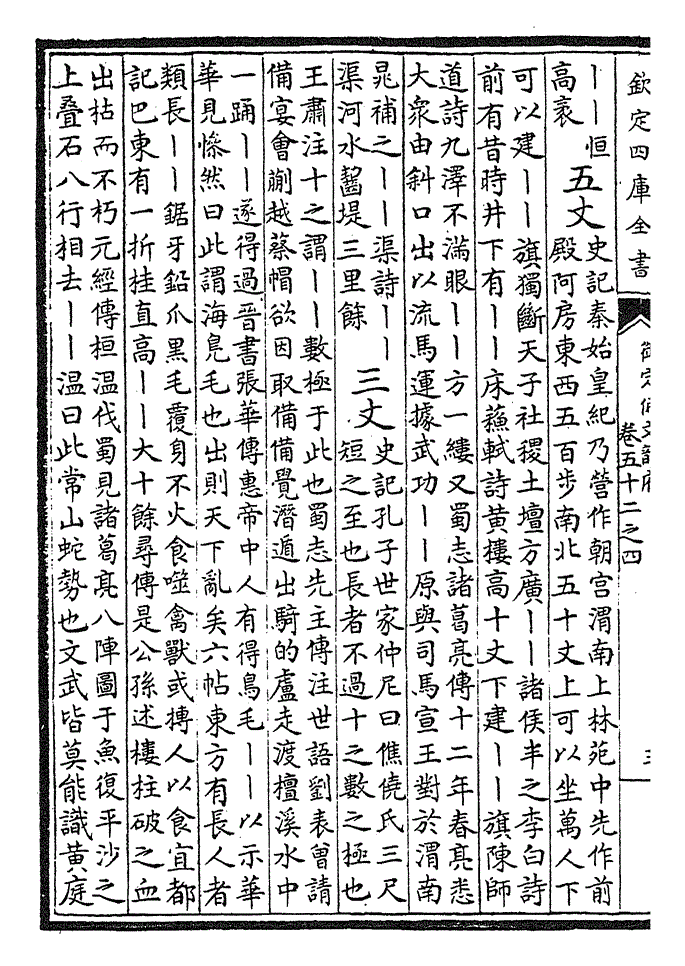 欽定四庫全書
御定佩文韻府
卷五十二之四
三
丨丨恒
高衮
五丈
史記秦始皇紀乃營作朝宫渭南上林苑中先作前
殿阿房東西五百步南北五十丈上可以坐萬人下
可以建丨丨旗獨斷天子社稷土壇方廣丨丨諸侯半之李白詩
前有昔時井下有丨丨床蘇軾詩黄樓高十丈下建丨丨旗陳師
道詩九澤不滿眼丨丨方一縷又蜀志諸葛亮傳十二年春亮悉
大衆由斜口出以流馬運據武功丨丨原與司馬宣王對於渭南
晁補之丨丨渠詩丨丨
渠河水齧堤三里餘
三丈
史記孔子世家仲尼曰僬僥氏三尺
短之至也長者不過十之數之極也
王肅注十之謂丨丨數極于此也蜀志先主傳注世語劉表曽請
備宴會蒯越蔡帽欲因取備備覺潛遁出騎的盧走渡檀溪水中
一踊丨丨遂得過晋書張華傳惠帝中人有得鳥毛丨丨以示華
華見慘然曰此謂海鳧毛也出則天下亂矣六帖東方有長人者
類長丨丨鋸牙鉛爪黒毛覆身不火食噬禽獸或摶人以食宜都
記巴東有一折挂直高丨丨大十餘尋傳是公孫述樓柱破之血
出枯而不朽元經傳桓温伐蜀見諸葛亮八陣圖于魚復平沙之
上叠石八行相去丨丨温曰此常山蛇勢也文武皆莫能識黄庭